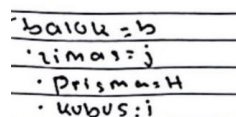 · balok = b
· limas = j
· Prisma = H
· kubus : i